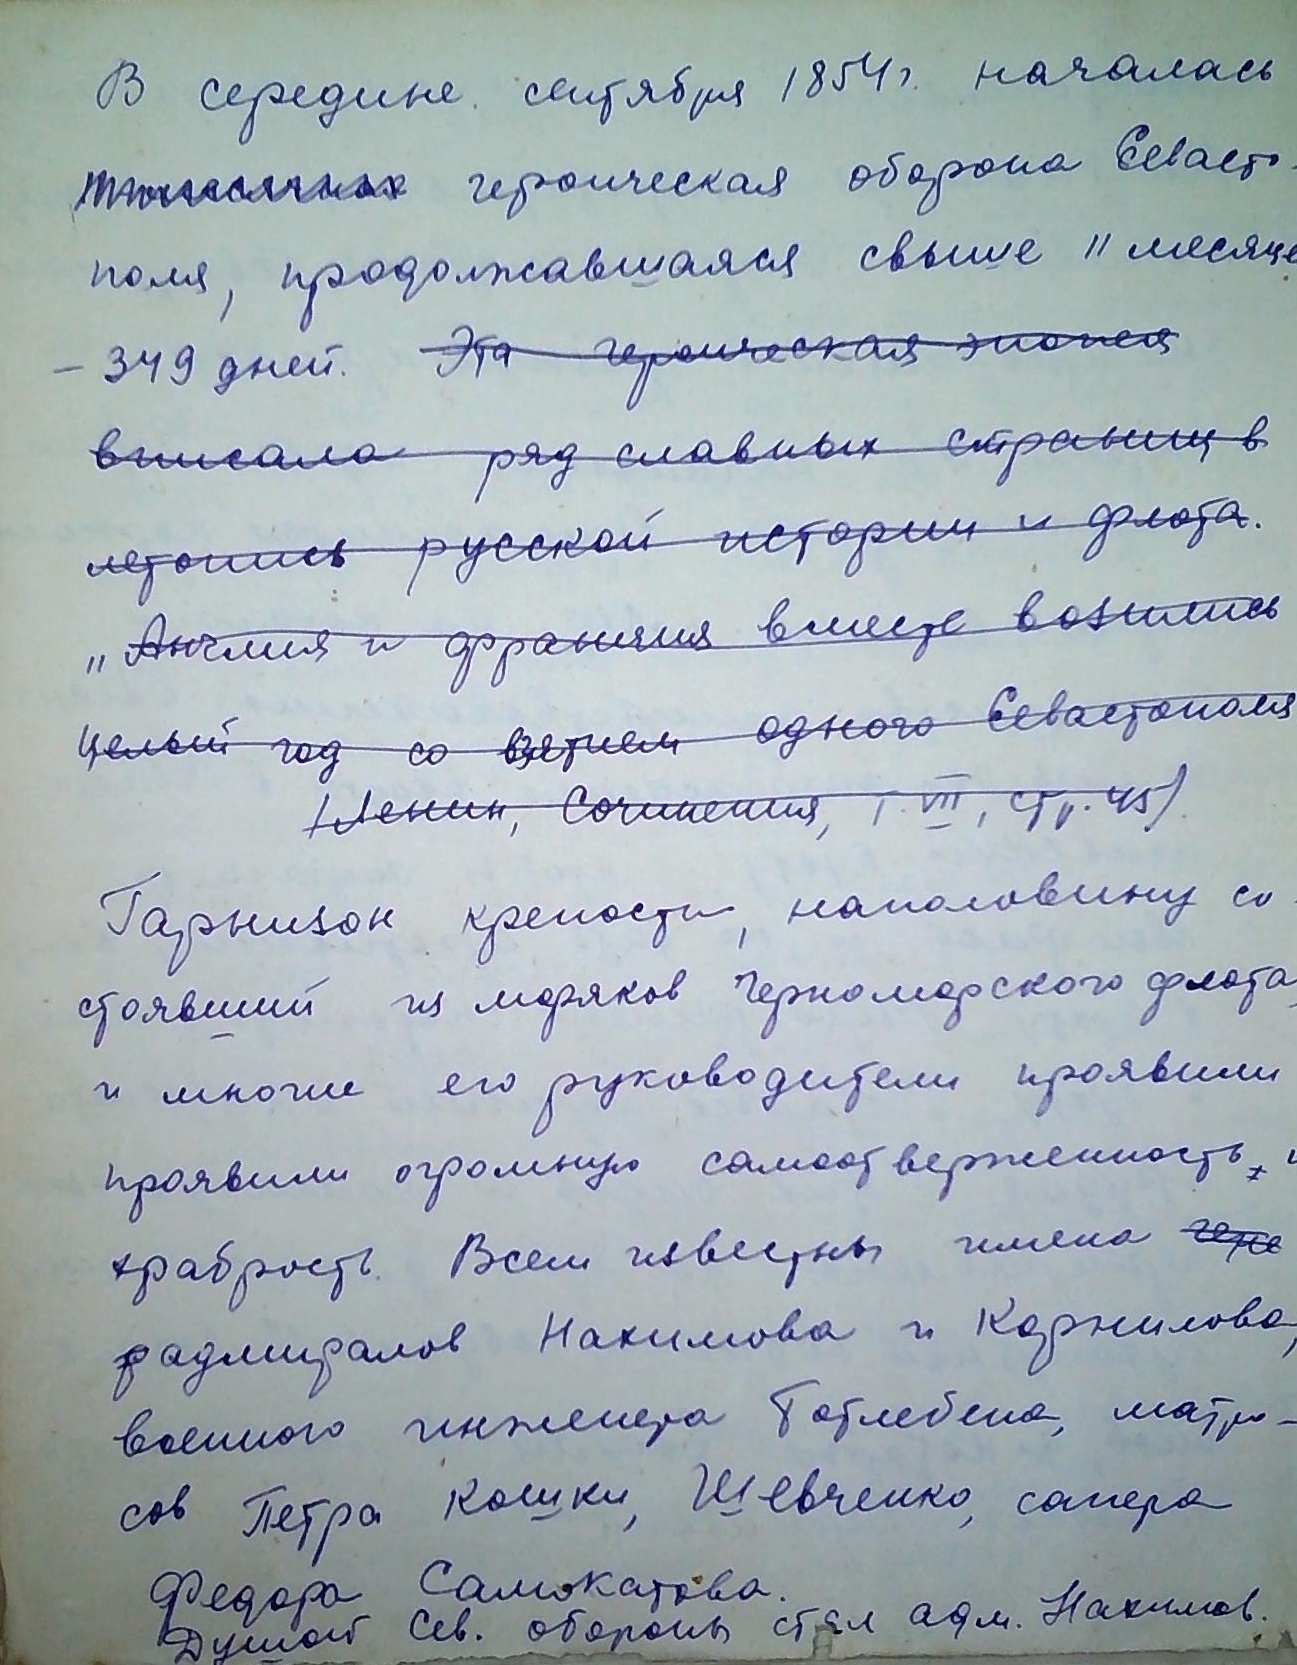 В середине сентября 1854 г. началась
героическая оборона Севасто-
поля, продолжавшаяся свыше 11 месяце
- 349 дней. Эта героическая эпопея
вписала ряд славных страниц в
летопись русской истории и флота.
„Англия и Франция вместе возились
целый год со взятием одного Севастополя
(Ленин, Сочинения, т. VII, стр. 45)
Гарнизон крепости, наполовину со-
стоявший из моряков Черноморского флота,
и многие его руководители проявили
проявили огромную самоотверженность и
храбрость. Всем известны имена
адмиралов Нахимова и Корнилова,
военного инженера Тотлебена, матро-
сов Петра Кошки, Шевченко, сапера
Федора Самокатова.
Душой Сев. обороны стал адм. Нахимов.